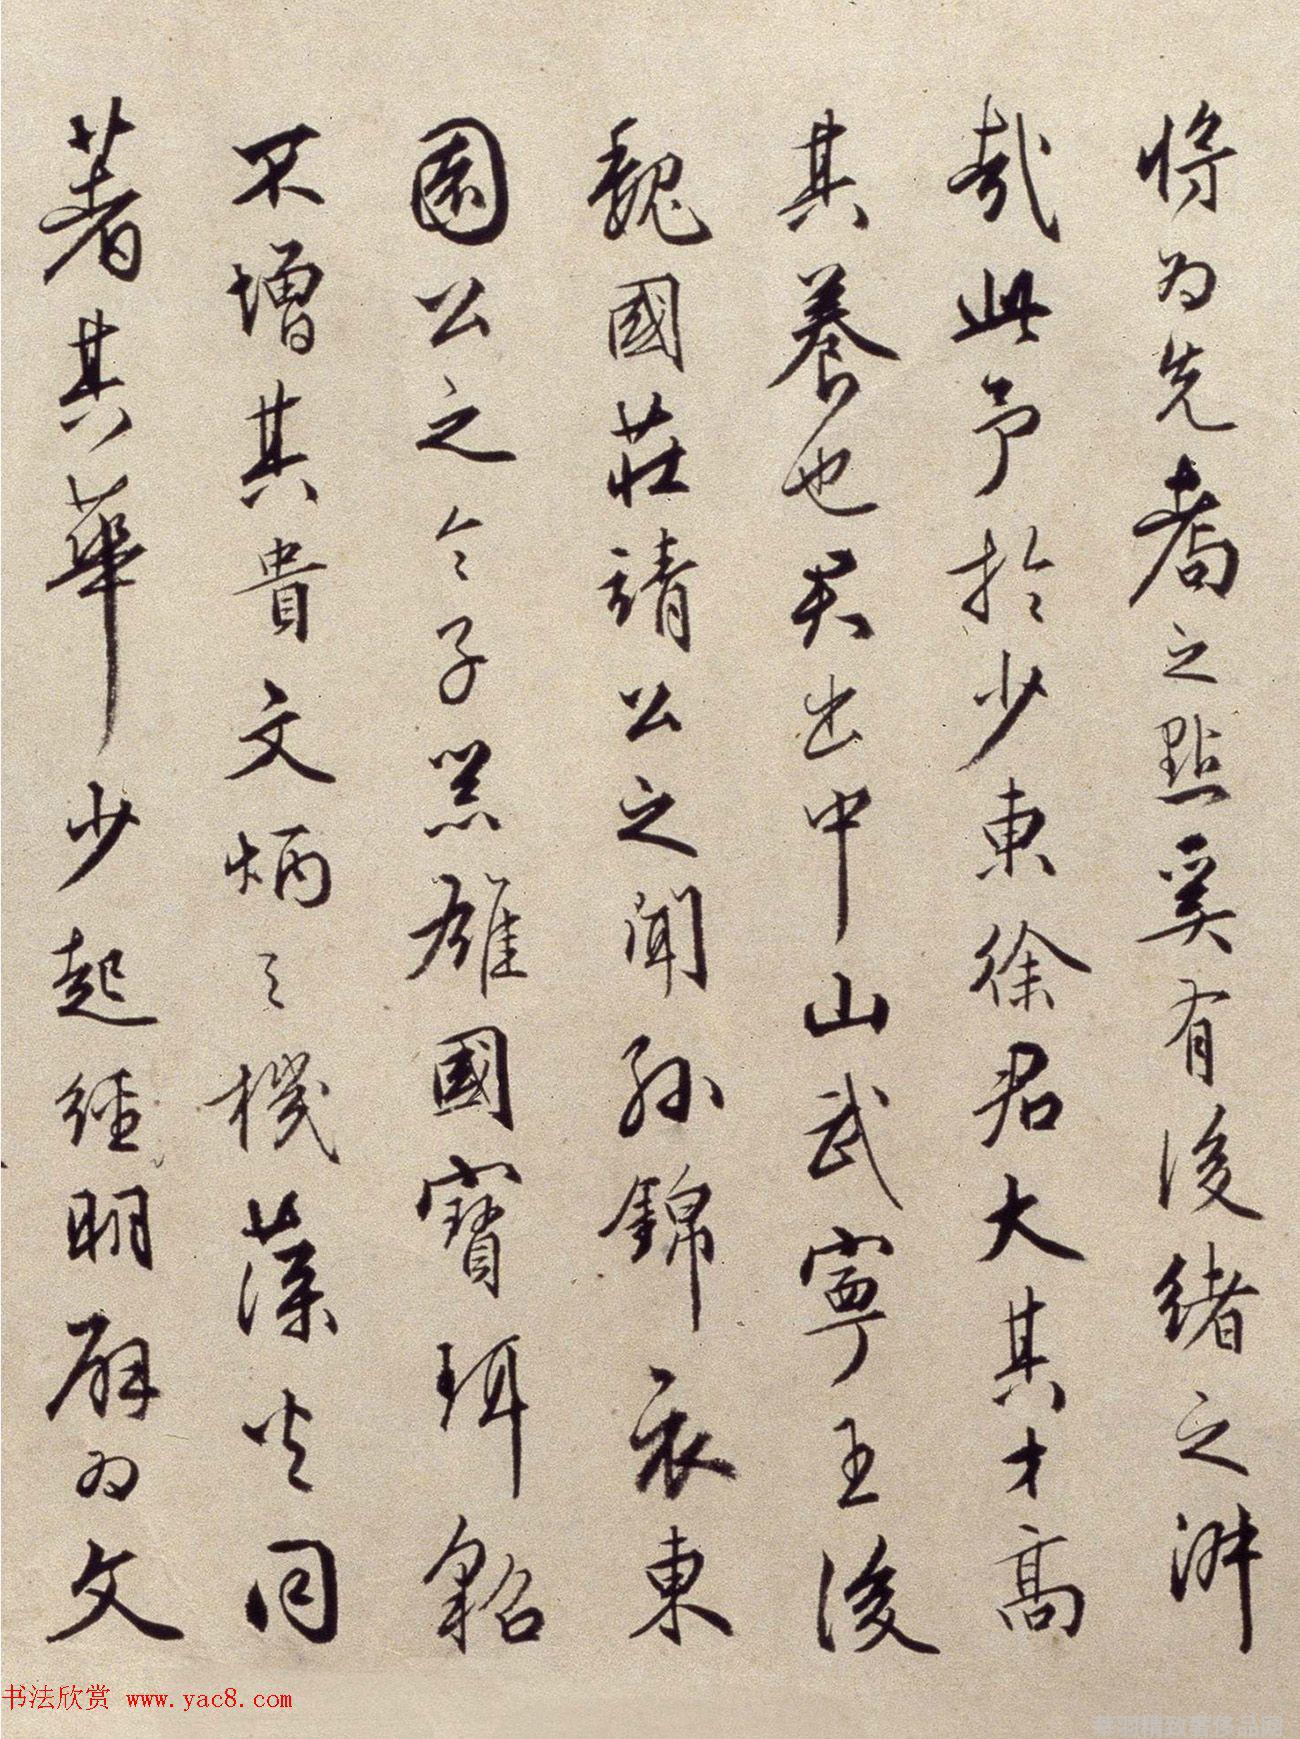 將为先耈之點奚有後緒之
哉此予於少東徐君大其才高
其養也君出中山武寧王後
魏國莊靖公之聞孫錦衣東
園公之令子器雄國寶珥貂
不增其貴文炳之機藻火同
著其華少起經明辟为文
书法欣赏 www.yac8.com